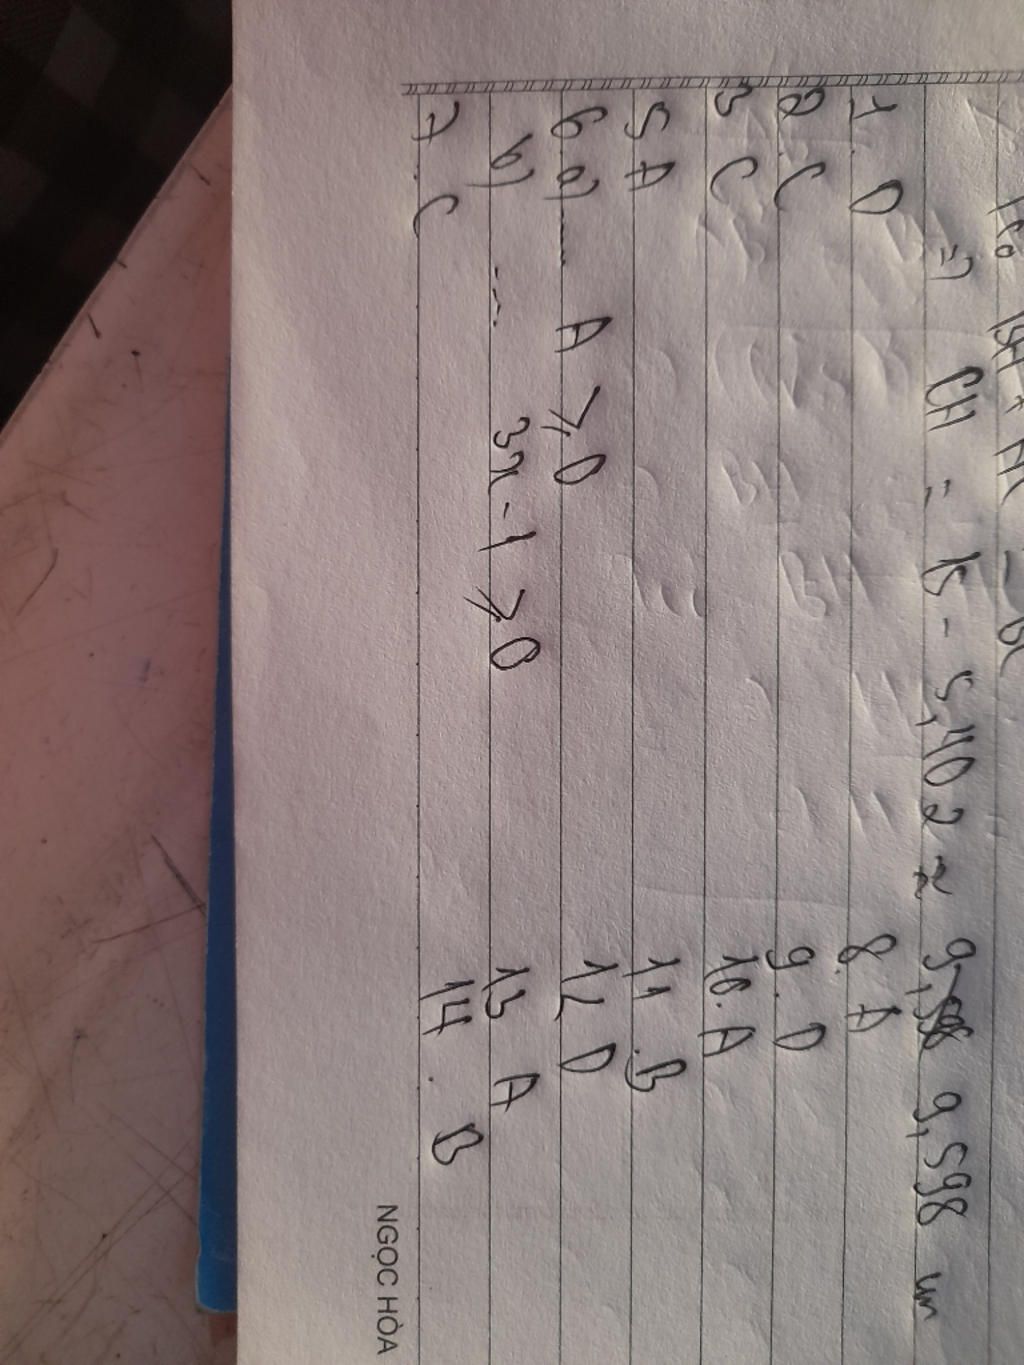 => CH = 15 - 5,402 ≈ 9,598 cm
1. D 8. A
2. C 9. D
3 C 10. A
5 A 11. B
6 a) .... A ⩾ 0 12 D
b) .... 3x - 1 ⩾ 0 13 A
7. C 14. B
NGỌC HÒA